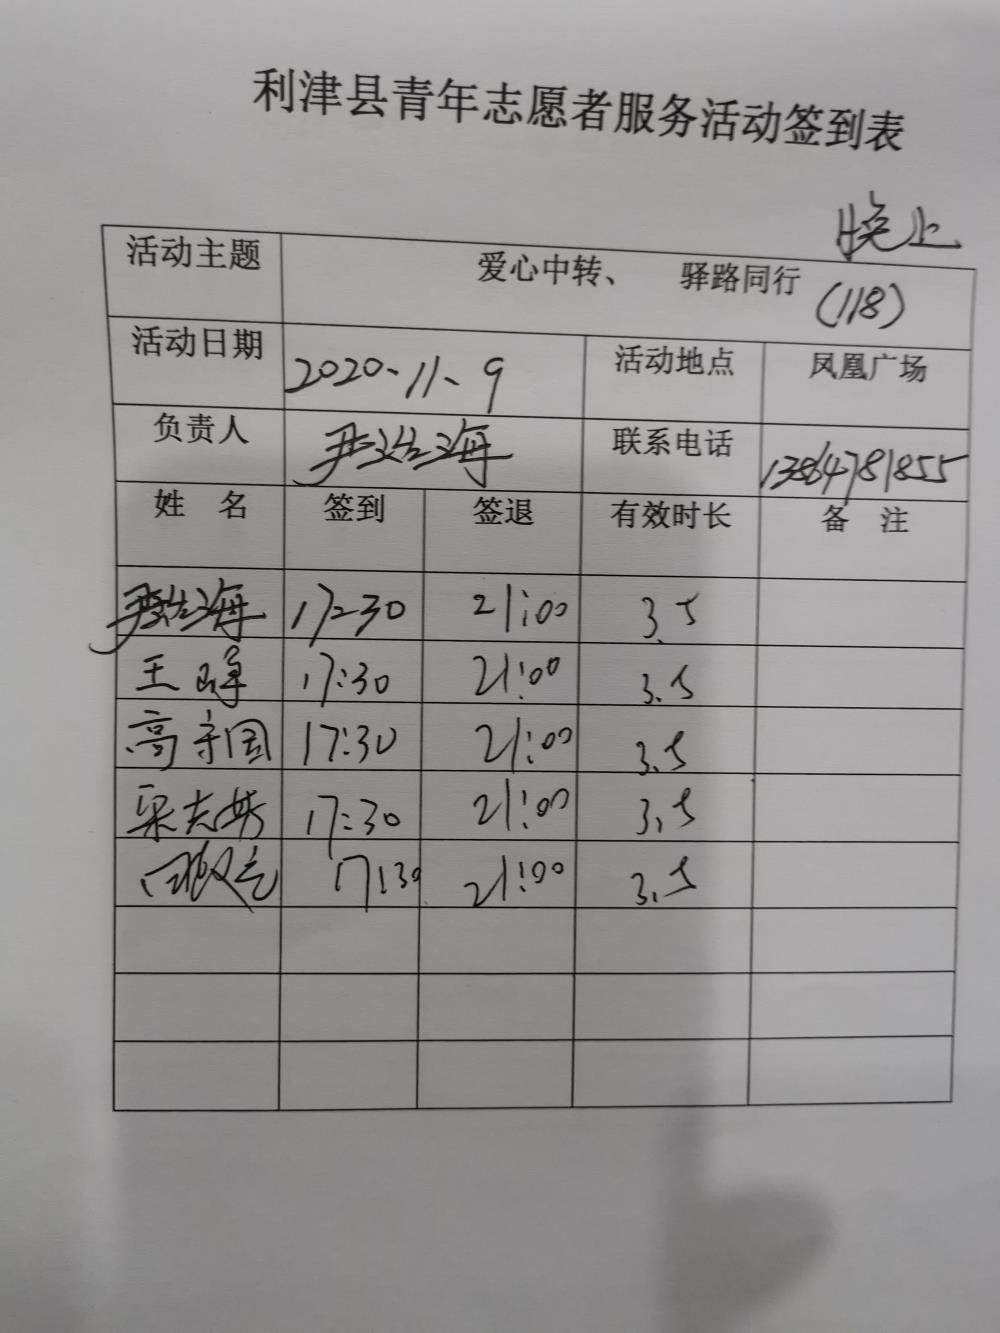 利津县青年志愿者服务活动签到表
晚上
活动主题 爱心中转、 驿路同行 (118)
活动日期 2020-11-9 活动地点 凤凰广场
负责人 海 联系电话 13864781855
姓 名 签到 签退 有效时长 备 注
海 17:30 21:00 3.5
王 17:30 21:00 3.5
高守国 17:30 21:00 3.5
梁志 17:30 21:00 3.5
17:30 21:00 3.5